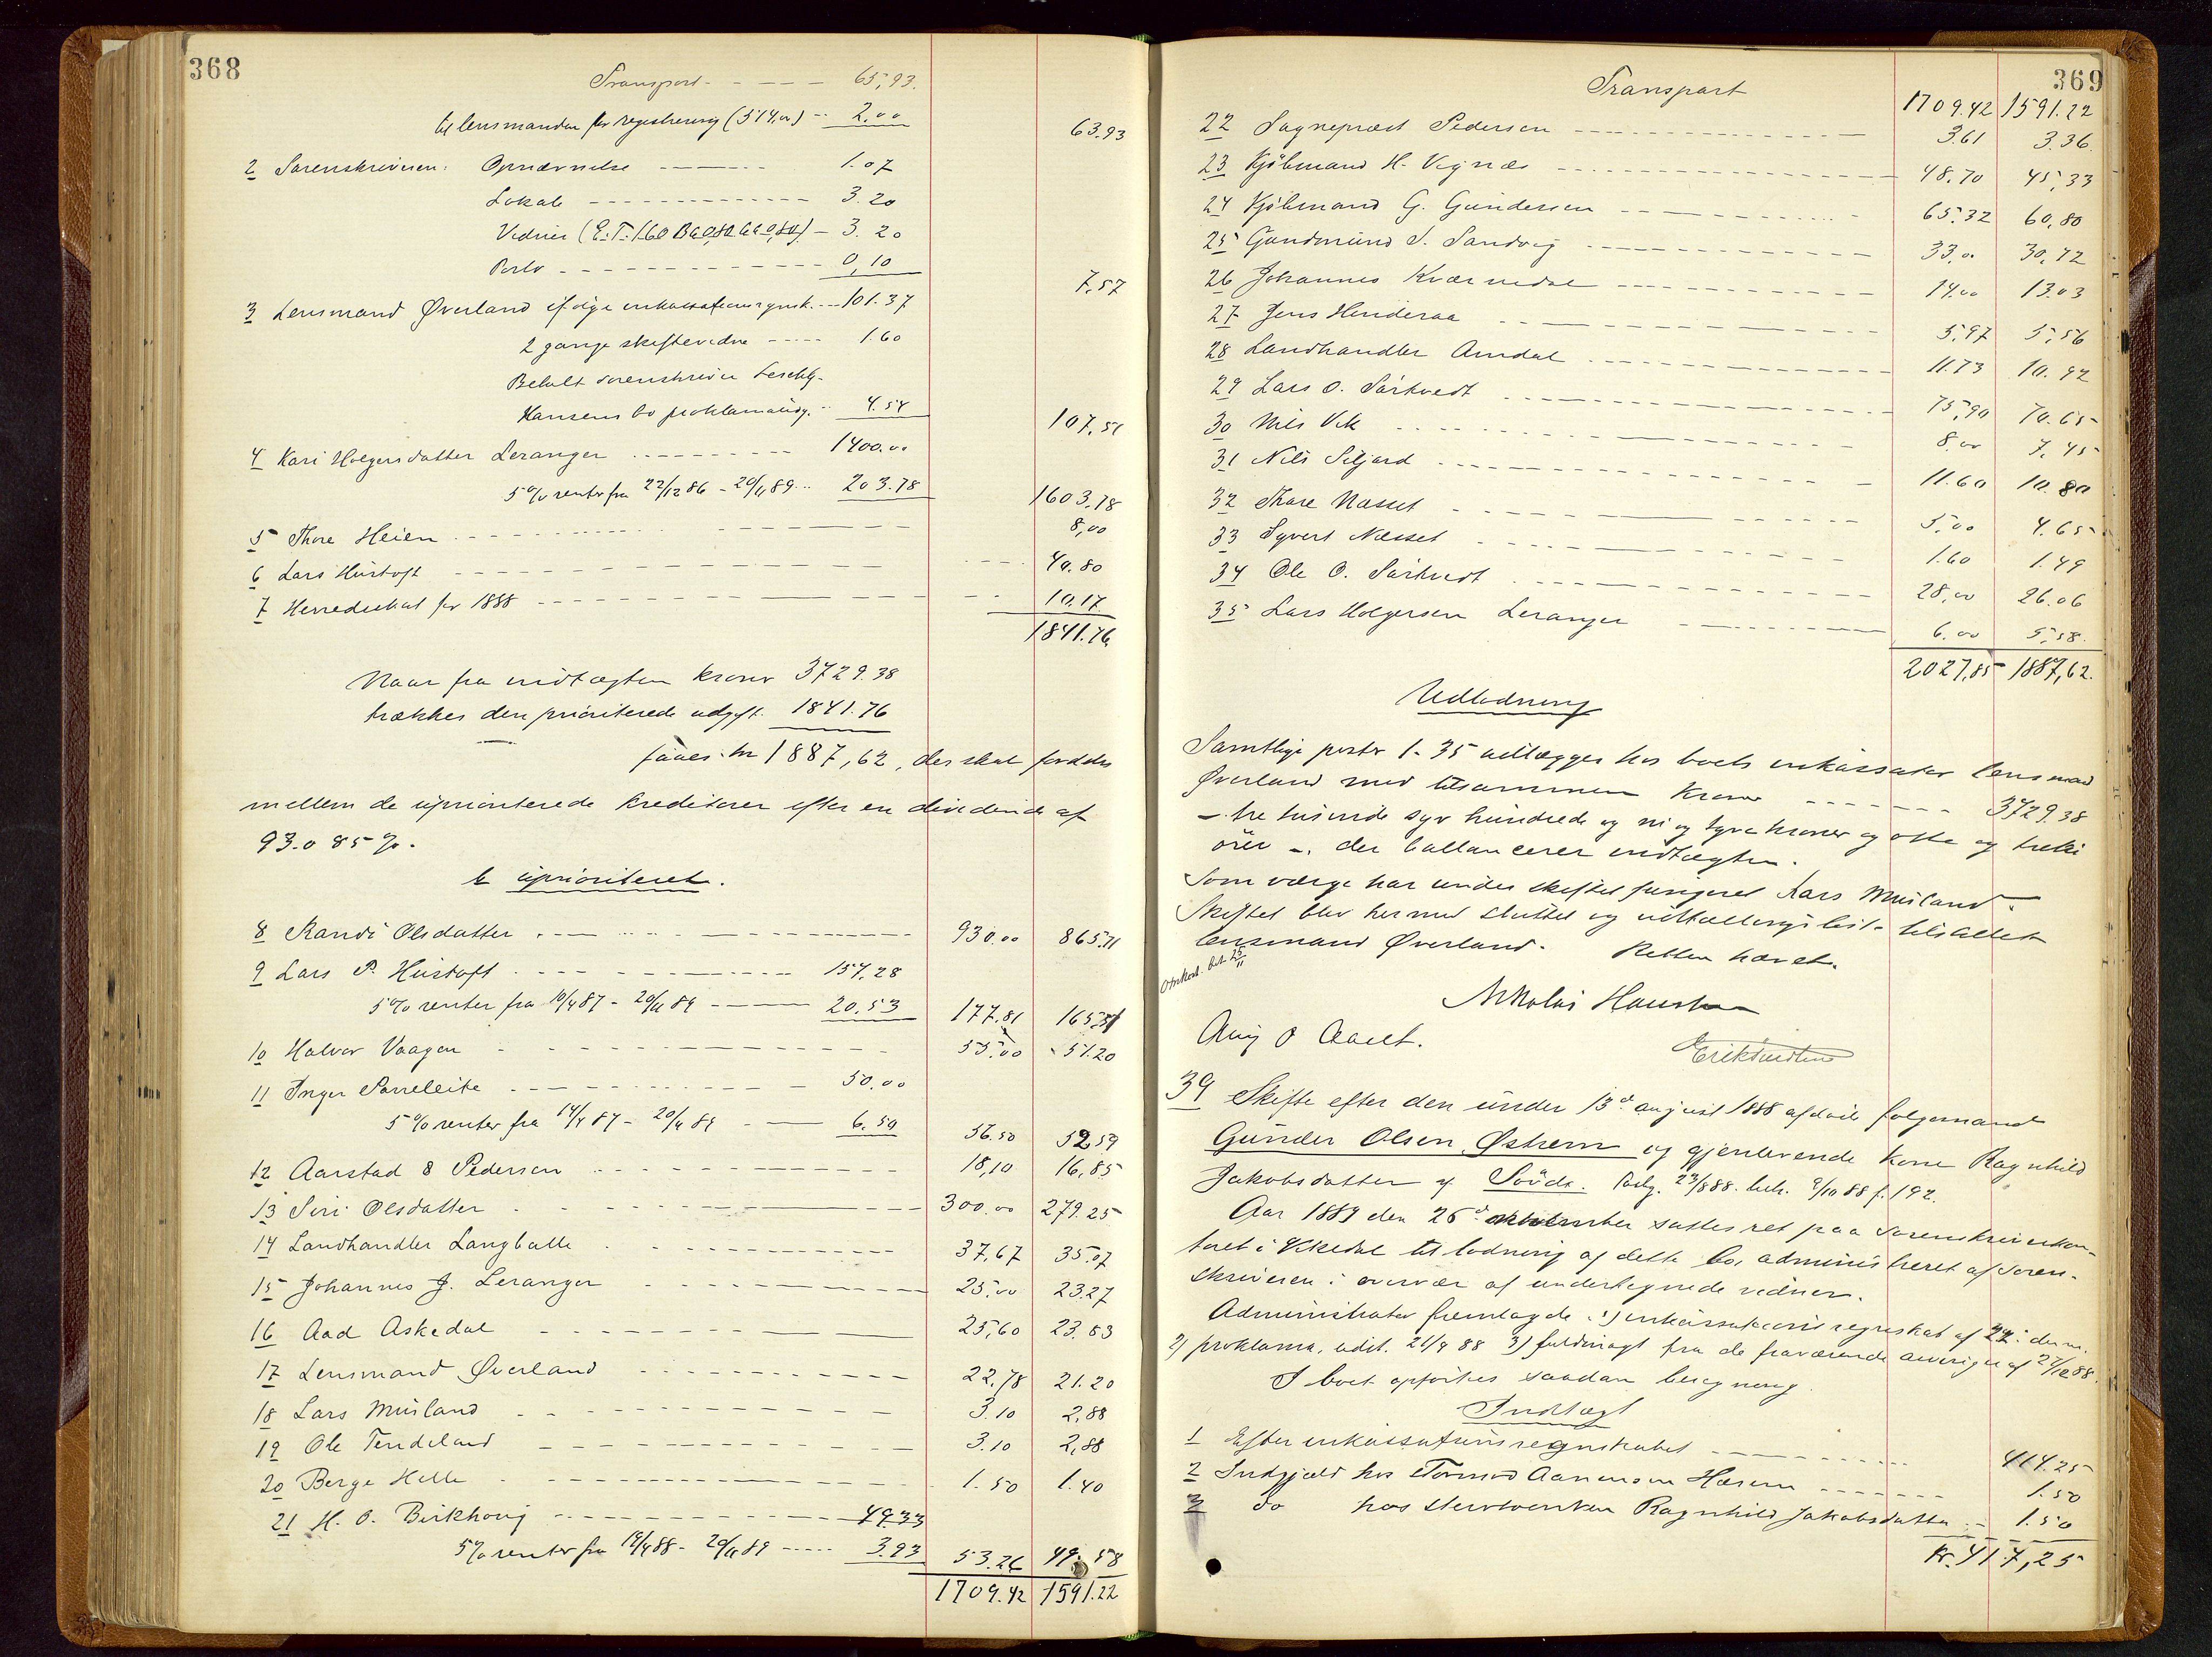 368
Transport - - - - - 65,93.
til lensmanden for registrering (514,00) - 2.00 63.93
2 Sorenskriveren: Opnævnelse - - - 1.07
Lokale - - - 3.20
Vidner (E.T. 1.60 B a 0,80 A a 0,80) - 3.20
Porto - - - 0,10 7,57
3 Lensmand Øverland ifølge inkassationsregnsk. - - 101.37
2 gange skiftevidne - - - 1.60
Betalt sorenskriver
Hansens bo proklamaudg. - 4.54 107,51
4 Kari Holgersdatter Leranger - - - 1400.00
5 % renter fra 22/12 86 - 20/11 89 - - 203.78 1603,78
5 Thore Heien - - - 8,00
6 Lars Hustoft - - - 40.80
7 Herredsskat for 1888 - - - 10.17
1841.76
Naar fra indtægten kroner 3729.38
trækkes den prioriterede udgift 1841.76
faaes kr 1887,62, der skal fordeles
mellem de uprioriterede kreditorer efter en dividende af
93.085 %.
b uprioriteret.
8 Randi Olsdatter - - - 930.00 865.71
9 Lars P. Hustoft - - - 157,28
5 % renter fra 10/4 87 - 20/11 89 - - - 20.53 177.81 165.51
10 Halvor Vaagen - - - 55,00 51.20
11 Inger Sørreleite - - - 50.00
5 % renter fra 14/4 87 - 20/11 89 - - - 6.50 56.50 52,59
12 Aarstad & Pedersen - - - 18,10 16,85
13 Siri Olsdatter - - - 300.00 279.25
14 Landhandler Langballe - - - 37,67 35.07
15 Johannes J. Leranger - - - 25.00 23.27
16 Aad Askedal - - - 25,60 23.83
17 Lensmand Øverland - - - 22,78 21.20
18 Lars Musland - - - 3.10 2,88
19 Ole Tendeland - - - 3.10 2,88
20 Berge Helle - - - 1.50 1.40
21 H. O. Birkhoug - - - 49.33
5 % renter fra 19/4 88 - 20/11 89 - - - 3.93 53.26 49.58
1709.42 1591.22
369
Transport 1709.42 1591.22
22 Sognepræst Pedersen - - - 3.61 3.36
23 Kjöbmand H. Vignæs - - - 48.70 45,33
24 Kjöbmand G. Gundersen - - - 65.32 60,80
25 Gundmund S. Sandvig - - - 33,00 30,72
26 Johannes Kværnedal - - - 14.00 13.03
27 Jens Hinderaa - - - 5,97 5,56
28 Landhandler Amdal - - - 11.73 10.92
29 Lars O. Sørtvedt - - - 75,90 70.65
30 Nils Vik - - - 8.00 7,45
31 Nils Siljord - - - 11.60 10.80
32 Thore Næsset - - - 5,00 4.65
33 Syvert Næsset - - - 1.60 1.49
34 Ole O. Sørtvedt - - - 28,00 26.06
35 Lars Holgersen Leranger - - - 6.00 5,58.
2027,85 1887,62.
Udlodning
Samtlige poster 1-35 udlægges hos boets inkassator lensmand
Øverland med tilsammen kroner - - - 3729.38
- tre tusinde syv hundrede og ni og tyve kroner og otte og tretti
örer -, der ballancerer indtægten.
Som værge har under skiftet fungeret Lars Musland.
Skiftet blev hermed sluttet og udtællingslist. tilstillet
lensmand Øverland. Retten hævet.
Omkost. bet. 25/11
Nikolai Hansen
Aug O Aaett.
39 Skifte efter den under 13d august 1888 afdöde folgemand
Gunder Olsen Østrem og gjenlevende kone Ragnhild
Jakobsdatter af Sövde. Reg. 23/8 88. beh. 9/10 88 f. 192.
Aar 1889 den 26d november sattes ret paa sorenskriverkon-
toret i Vikedal til lodning af dette bo, administreret af soren-
skriveren i overvær af undertegnede vidner.
Administrator fremlagde: 1) inkassationsregnskab af 22. ds m.
2) proklama, udst. 21/9 88 3) fuldmagt fra de fraværende arvinger af 27/12 88.
I boet opførtes saadan beregning.
Indtægt
1 Efter inkassationsregnskabet - - - 414.25
2 Indgjæld hos Tormod Aanensen Hærem - - - 1.50
3 do hos sterboenken Ragnhild Jakobsdatter - - 1.50
Kr. 417,25